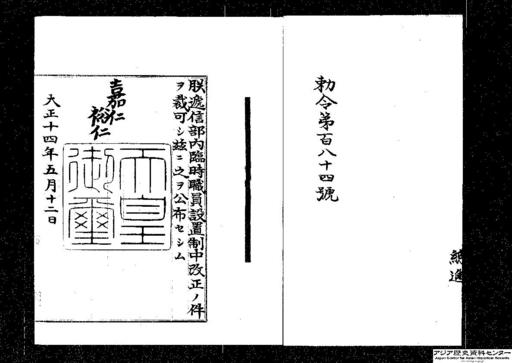 勅令第百八十四號
朕遞信部內臨時職員設置制中改正ノ件
ヲ裁可シ玆ニ之ヲ公布セシム
嘉仁
裕仁
天皇
御璽
大正十四年五月十二日
アジア歴史資料センター
Japan Center for Asian Historical Records